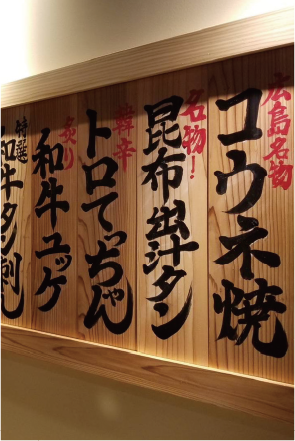 広島名物
コウネ焼
名物!
昆布出汁タン
韓辛
トロてっちゃん
炙り
和牛ユッケ
特選
和牛タン刺し